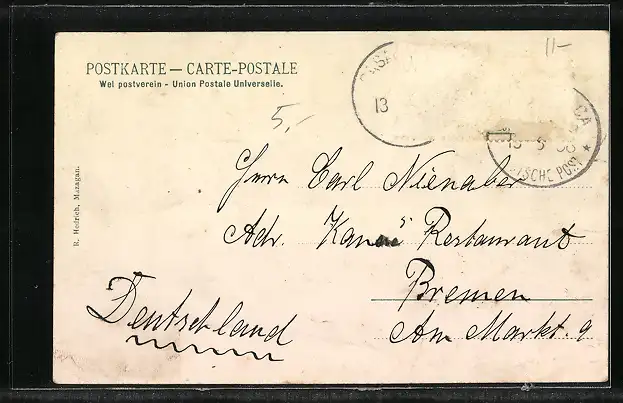 POSTKARTE — CARTE-POSTALE
Wel postverein - Union Postale Universelle.
11-
5,-
CASA
13
CA
13 5 08
TSCHE POST ★
Herrn Carl Nienaber
Adr. Restaurant
Bremen
Am Markt. 9
Deutschland
R. Hedrich, Mazagan.